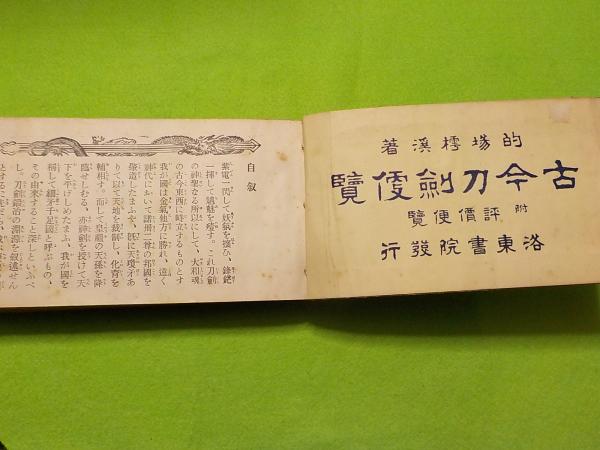 的場樗溪著
古今刀劍便覽
附 評價便覽
洛東書院發行
自叙
紫電一閃して妖氛を攘ひ、鋒鋩
一揮して魑魅を殪す。これ刀劍
の神聖なる所以にして、大和魂
の古今東西に峙立するものとす
我が國は金氣他方に勝れ、遠く
神代において諾册二尊の邦國を
營造したまふや、既に天瓊矛あ
りて以て天地を裁制し、化育を
輔相す。而して皇祖の天孫を降
臨せしむる、亦神劍を授けて天
下を平げしめたまふ、我が國を
稱して細矛千足國と呼ぶもの、
その由來すること深しといふべ
し。刀劍鍛冶の淵源を叙述せん